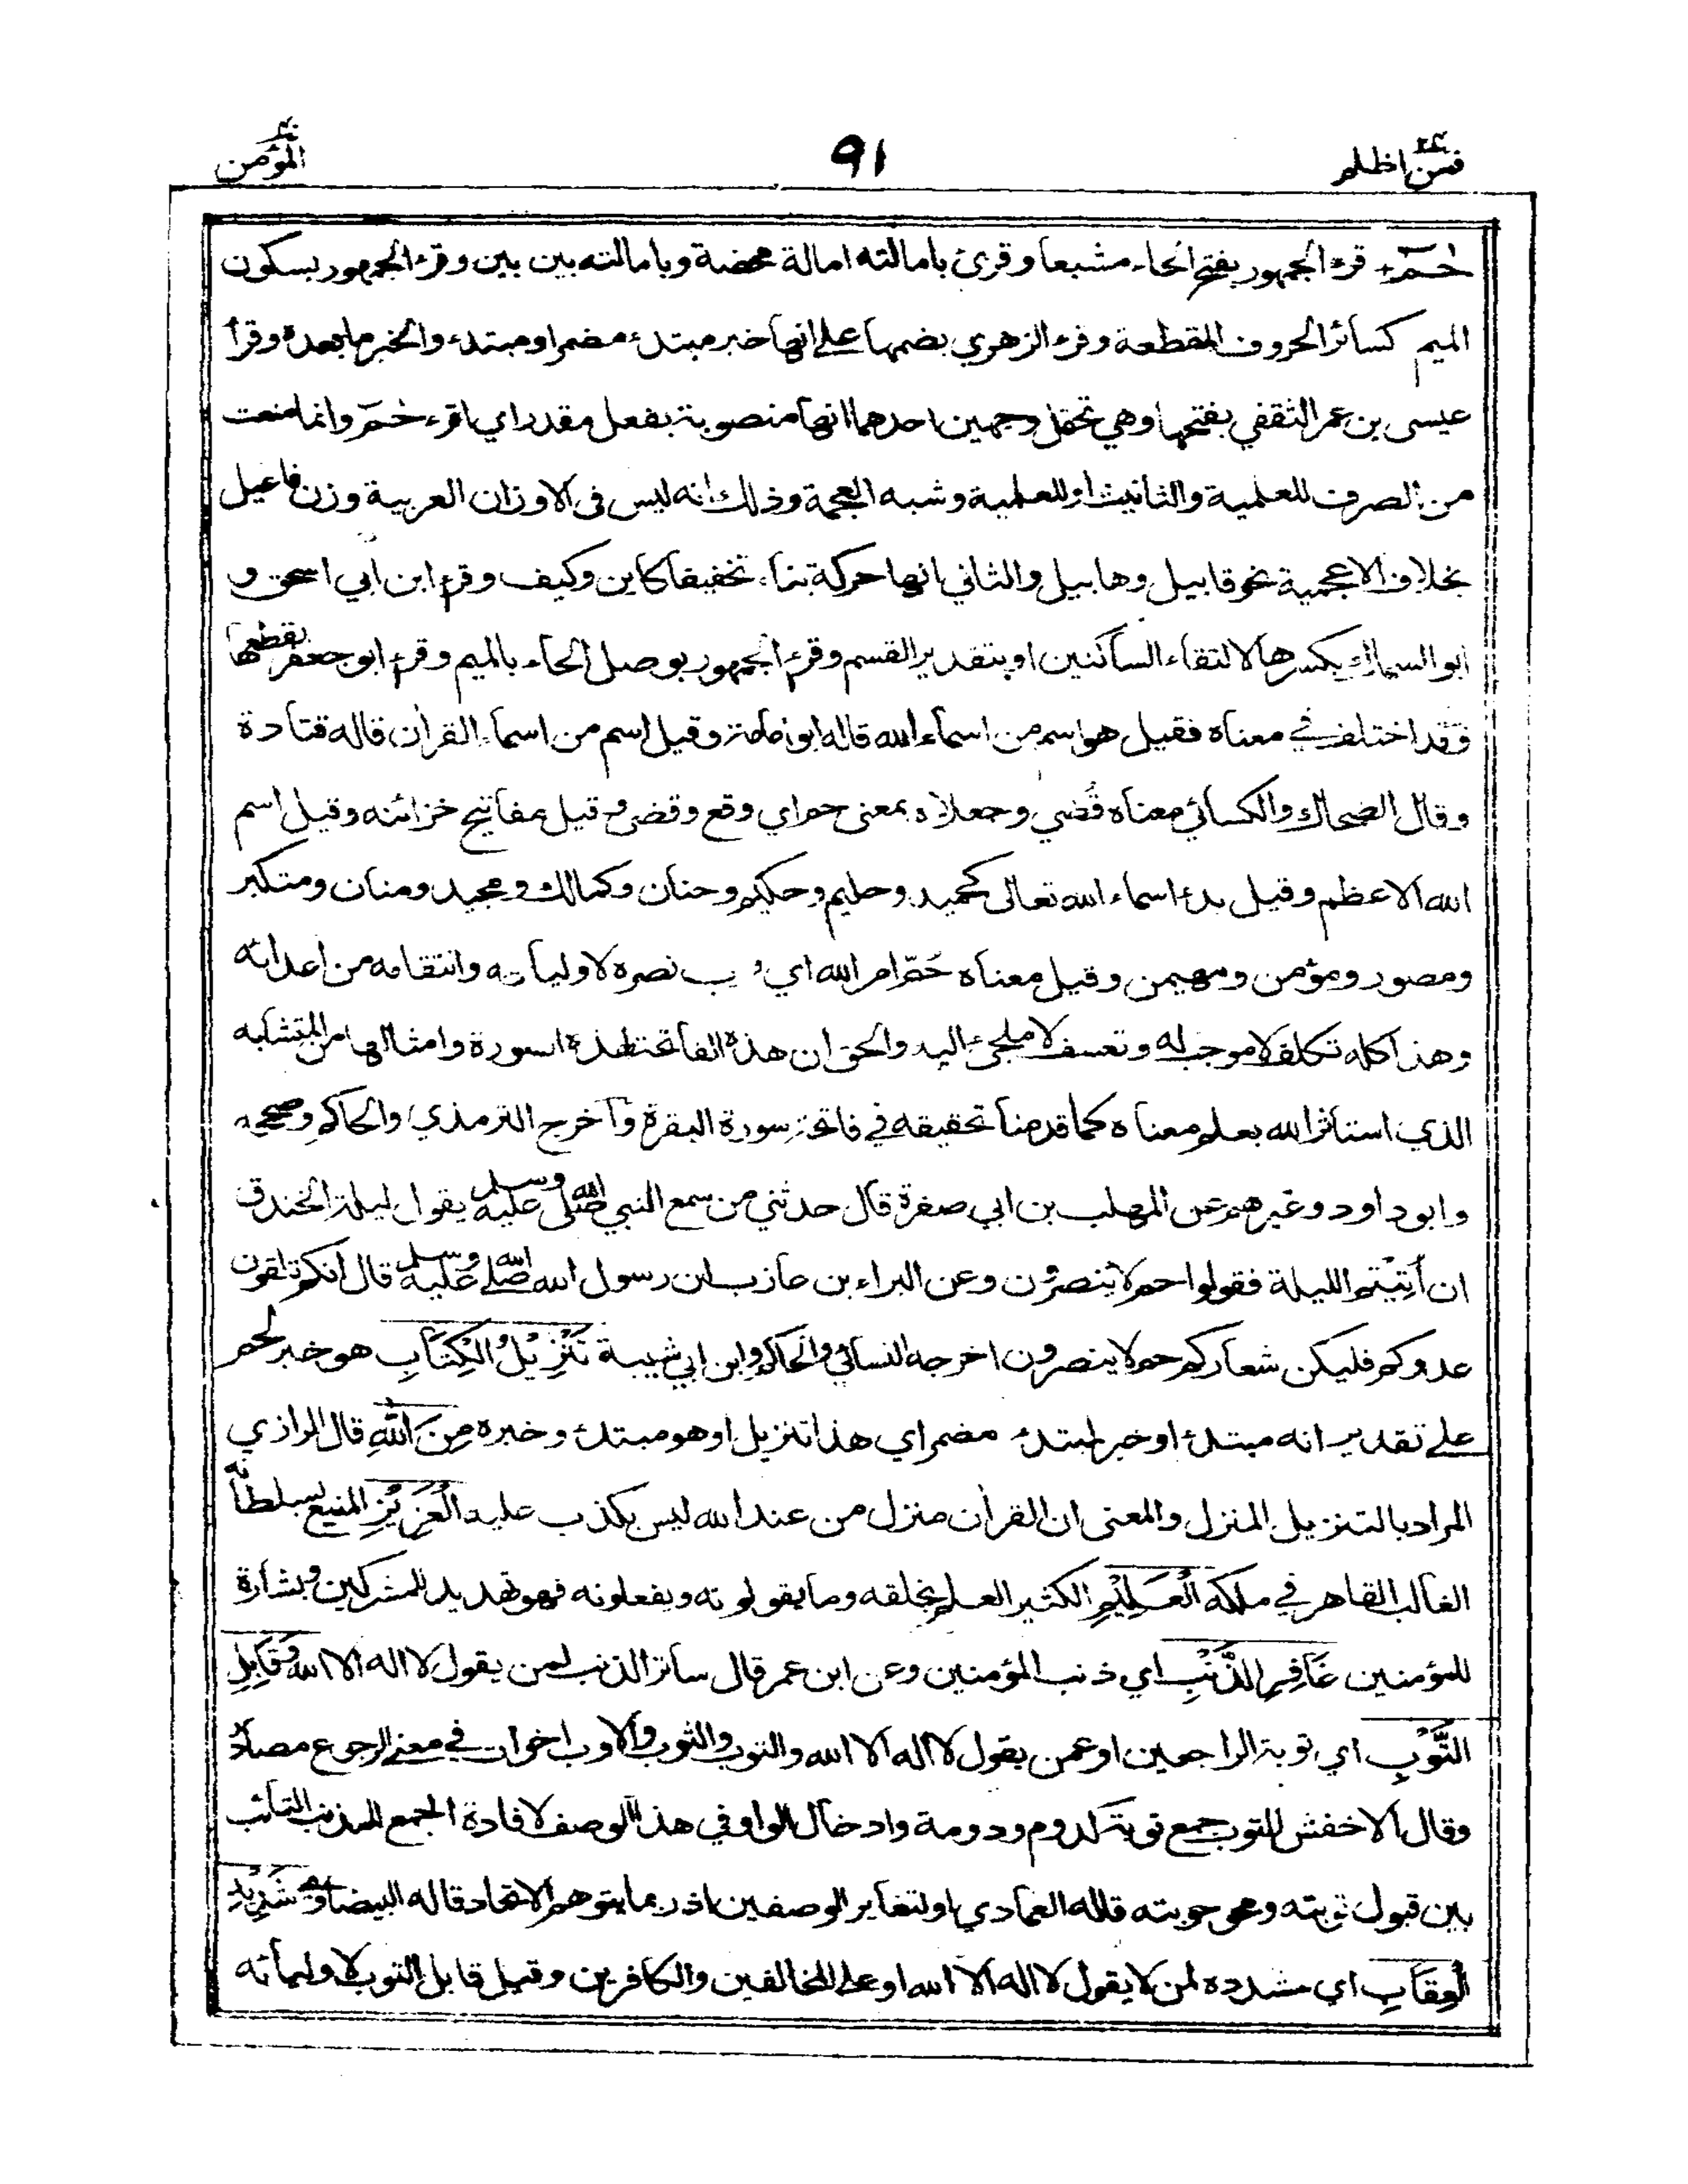 فمن اظلم ٢٤
٩١
المؤمن ٤٠
حٰمٓ قرء الجمهور بفتح الحاء مشبعا وقرئ بامالته امالة محضة وبامالته بين بين وقرء الجمهور بسكون
الميم كسائر الحروف المقطعة وقرء الزهري بضمها على انها خبر مبتدء مضمر او مبتدء والخبر ما بعده وقرأ
عيسى بن عمر الثقفي بفتحها وهي تحتمل وجهين احدهما انها منصوبة بفعل مقدر اي اقرء حٰمٓ وانما منعت
من الصرف للعلمية والتانيث او للعلمية وشبه العجمة وذلك انه ليس فى الاوزان العربية وزن فاعيل
بخلاف الاعجمية نحو قابيل وهابيل والثاني انها حركة بناء تخفيفا كاين وكيف وقرء ابن ابي اسحق و
ابو السماك بكسرها لالتقاء الساكنين او بتقدير القسم وقرء الجمهور بوصل الحاء بالميم وقرء ابو جعفر بقطعها
وقد اختلف في معناه فقيل هو اسم من اسماء الله قاله ابو امامة وقيل اسم من اسماء القرآن قاله قتادة
وقال الضحاك والكسائي معناه قُضي وجعلاه بمعنى حم اي وقع وقضى وقيل مفاتيح خزائنه وقيل اسم
الله الاعظم وقيل بدء اسماء الله تعالى كحميد وحليم وحكيم وحنان وكمالك ومجيد ومنان ومتكبر
ومصور ومؤمن ومهيمن وقيل معناه حُمّ امر الله اي نصره لاوليائه وانتقامه من اعدائه
وهذا كله تكلف لا موجب له وتعسف لا ملجئ اليه والحق ان هذه الفاتحة لهذه السورة وامثالها من المتشابه
الذي استاثر الله بعلم معناه كما قدمنا تحقيقه في فاتحة سورة البقرة وآخرج الترمذي والحاكم وصححه
وابوداود وغيرهم عن المهلب بن ابي صفرة قال حدثني من سمع النبي صلى الله عليه وسلم يقول ليلة الخندق
ان أُتِيْتم الليلة فقولوا حم لا ينصرون وعن البراء بن عازب ان رسول الله صلى الله عليه وسلم قال انكم تلقون
عدوكم فليكن شعاركم حم لا ينصرون اخرجه النسائي والحاكم وابن ابي شيبة تَنْزِيْلُ الْكِتَابِ هو خبر لحم
على تقدير انه مبتدء او خبر لمبتدء مضمر اي هذا تنزيل او هو مبتدء وخبره مِنَ اللّٰهِ قال الرازي
المراد بالتنزيل المنزل والمعنى ان القرآن منزل من عند الله ليس بكذب عليه الْعَزِيْزِ المنيع بسلطانه
الغالب القاهر في ملكه الْعَلِيْمِ الكثير العلم بخلقه وما يقولونه ويفعلونه فهو تهديد للمشركين وبشارة
للمؤمنين غَافِرِ الذَّنْبِ اي ذنب المؤمنين وعن ابن عمر قال ساتر الذنب لمن يقول لا اله الا الله وَقَابِلِ
التَّوْبِ اي توبة الراجعين او عمن يقول لا اله الا الله والتوب والثوب والاوب اخوات في معنى الرجوع مصادر
وقال الاخفش التوب جمع توبة كدوم ودومة وادخال الواو في هذا الوصف لافادة الجمع للمذنب التائب
بين قبول توبته ومحو حوبته قاله العمادي او لتغاير الوصفين اذ ربما يتوهم الاتحاد قاله البيضاوي شَدِيْدِ
الْعِقَابِ اي مشدده لمن لا يقول لا اله الا الله او على المخالفين والكافرين وقيل قابل التوب لاوليائه